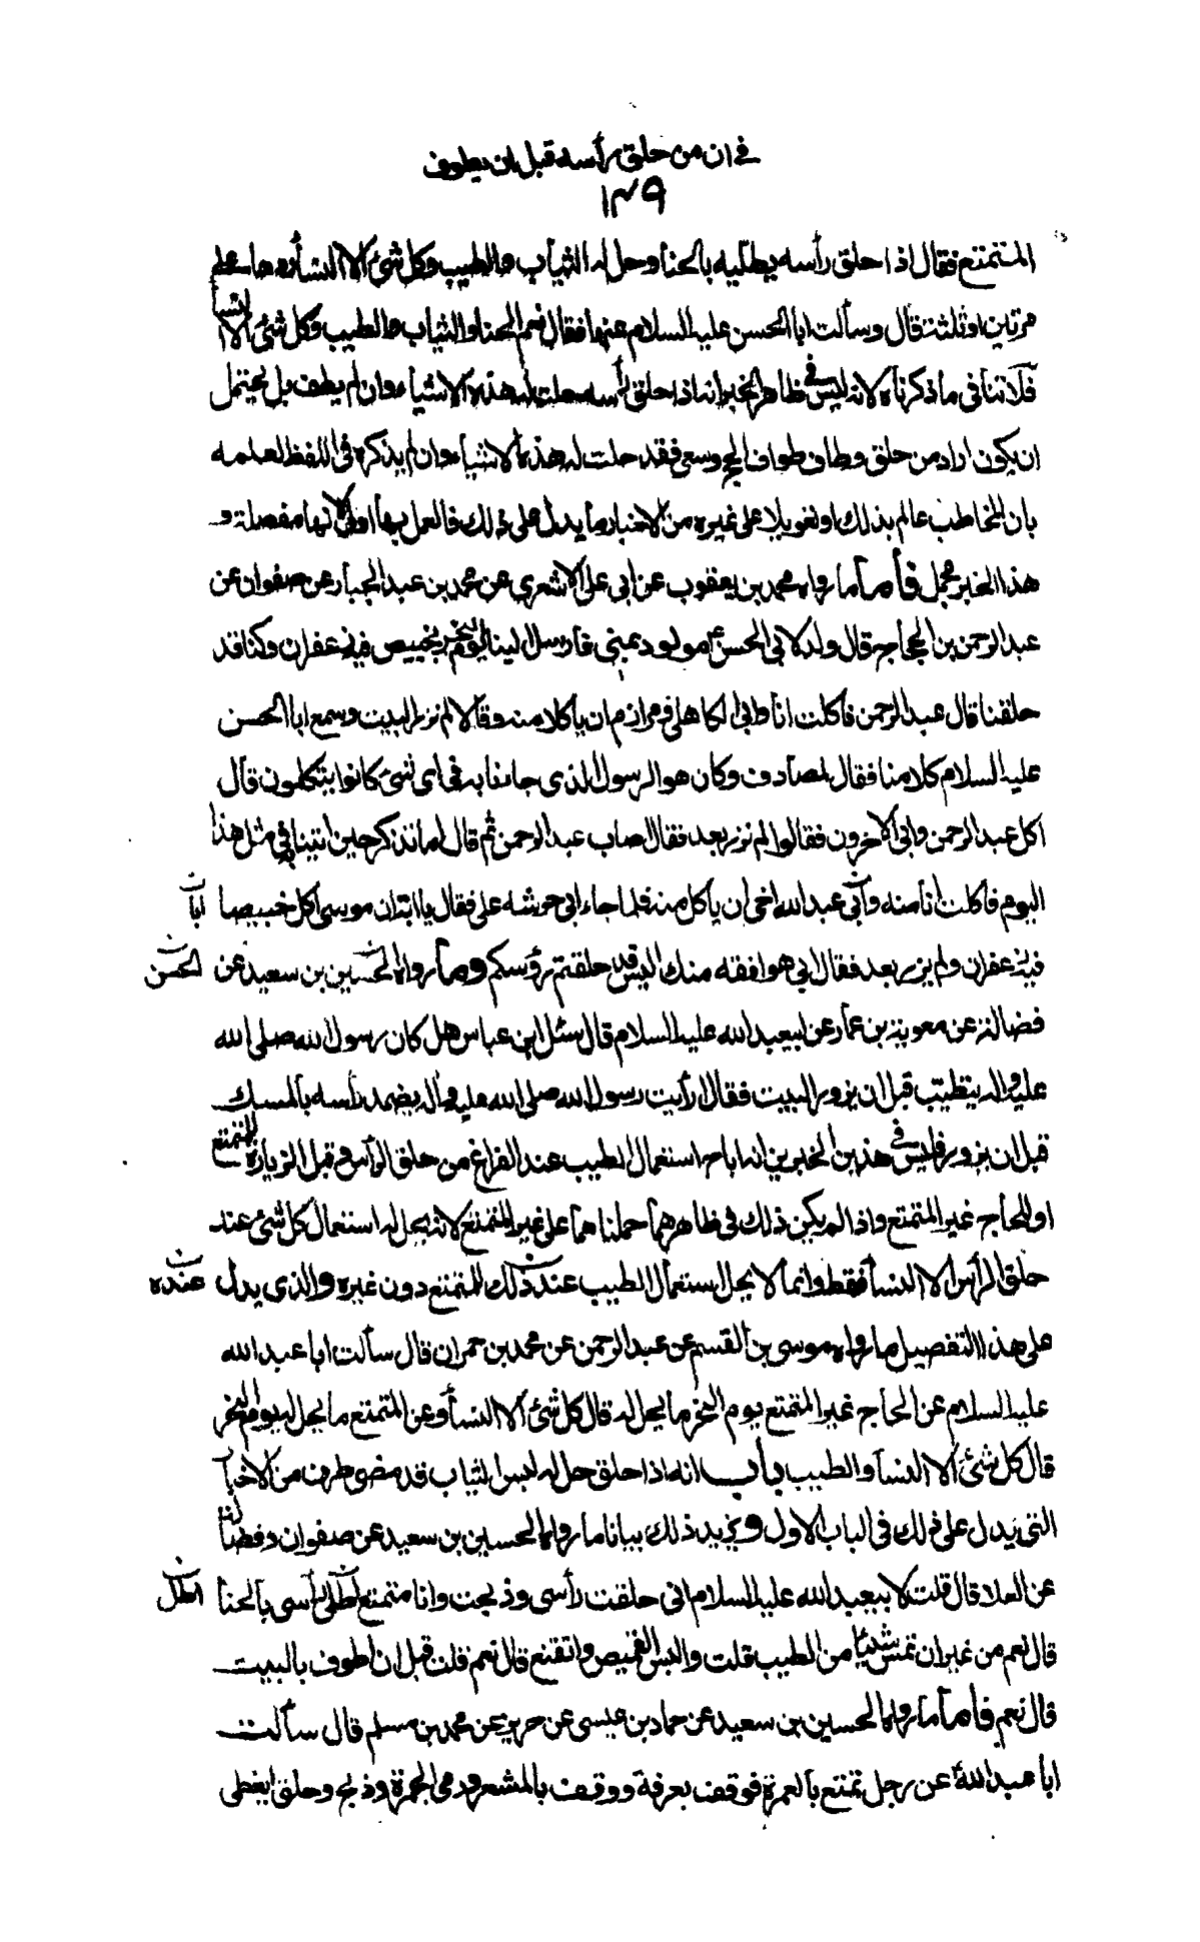 في ان من حلق رأسه قبل ان يطوف
١٣٩
المتمتع فقال اذا حلق رأسه يطليه بالحنا وحل له الثياب والطيب وكل شئ الا النسأ
مرتين او ثلثة قال وسألت ابا الحسن عليه السلام عنها فقال نعم الحنا والثياب والطيب وكل شئ الا النسا
فلا تنافى ما ذكرناه لانه ليس في ظاهر الخبر انه اذا حلق رأسه حلت له هذه الاشياء وان لم يطف بل يحتمل
ان يكون اراد من حلق وطاف طواف الحج وسعى فقد حلت له هذه الاشياء وان لم يذكره في اللفظ لعلمه
بان المخاطب عالم بذلك او تعويلا على غيره من الاخبار ما يدل على ذلك فالعمل بها اولى لانها مفصلة و
هذا الخبر مجمل فأما ما رواه محمد بن يعقوب عن ابى على الاشعري عن محمد بن عبد الجبار عن صفوان عن
عبد الرحمن بن الحجاج قال ولد لابي الحسن ع مولود بمنى فارسل الينا يوم النحر بخبيص فيه زعفران وكنا قد
حلقنا قال عبد الرحمن فأكلت انا وابى الكاهلى ومرازم ان يأكلا منه وقالا لم نزر البيت وسمع ابا الحسن
عليه السلام كلامنا فقال لمصادف وكان هو الرسول الذى جاءنا به في اى شئ كانوا يتكلمون قال
اكل عبد الرحمن وابى الآخرون فقالوا لم نزر بعد فقال اصاب عبد الرحمن ثم قال اما تذكر حين اتينا به في مثل هذا
اليوم فأكلت انا منه وأبى عبد الله اخى ان يأكل منه فلما جاء ابى حرشه على فقال يا ابتان موسى اكل خبيصا اباه ن
فيه زعفران ولم يزر بعد فقال ابى هو افقه منك اليس قد حلقتم رؤسكم وما رواه الحسين بن سعيد عن الحسن ن
فضالة عن معوية بن عمار عن ابيعبد الله عليه السلام قال سئل ابن عباس هل كان رسول الله صلى الله
عليه واله يتطيب قبل ان يزور البيت فقال رأيت رسول الله صلى الله عليه واله يضمد رأسه بالمسك
قبل ان يزور فليس في هذين الخبرين انه اباح استعمال الطيب عند الفراغ من حلق الرأس وقبل الزيارة للمتمتع
او للحاج غير المتمتع واذا لم يكن ذلك في ظاهرهما حملناهما على غير المتمتع لانه يحل له استعمال كل شئ عند
حلق الرأس الا النسأ فقط وانما لا يحل استعمال الطيب عند ذلك للمتمتع دون غيره والذى يدل عنده ن
على هذا التفصيل ما رواه موسى بن القسم عن عبد الرحمن عن محمد بن حمران قال سألت ابا عبد الله
عليه السلام عن الحاج غير المتمتع يوم النحر ما يحل له قال كل شئ الا النسأ وعن المتمتع ما يحل له يوم النحر
قال كل شئ الا النسأ والطيب باب انه اذا حلق حل له لبس الثياب قد مضى طرف من الاخبار
التى يدل على ذلك في الباب الاول ويزيد ذلك بيانا ما رواه الحسين بن سعيد عن صفوان وفضالة
عن العلا قال قلت لابيعبد الله عليه السلام انى حلقت رأسى وذبحت وانا متمتع اطلى رأسى بالحنأ اطل ن
قال نعم من غير ان تمس شيئا من الطيب قلت والبس القميص واتقنع قال نعم قلت قبل ان اطوف بالبيت
قال نعم فأما ما رواه الحسين بن سعيد عن حماد بن عيسى عن حريز عن محمد بن مسلم قال سألت
ابا عبد الله ع عن رجل تمتع بالعمرة فوقف بعرفة ووقف بالمشعر ورمى الجمرة وذبح وحلق ايغطى